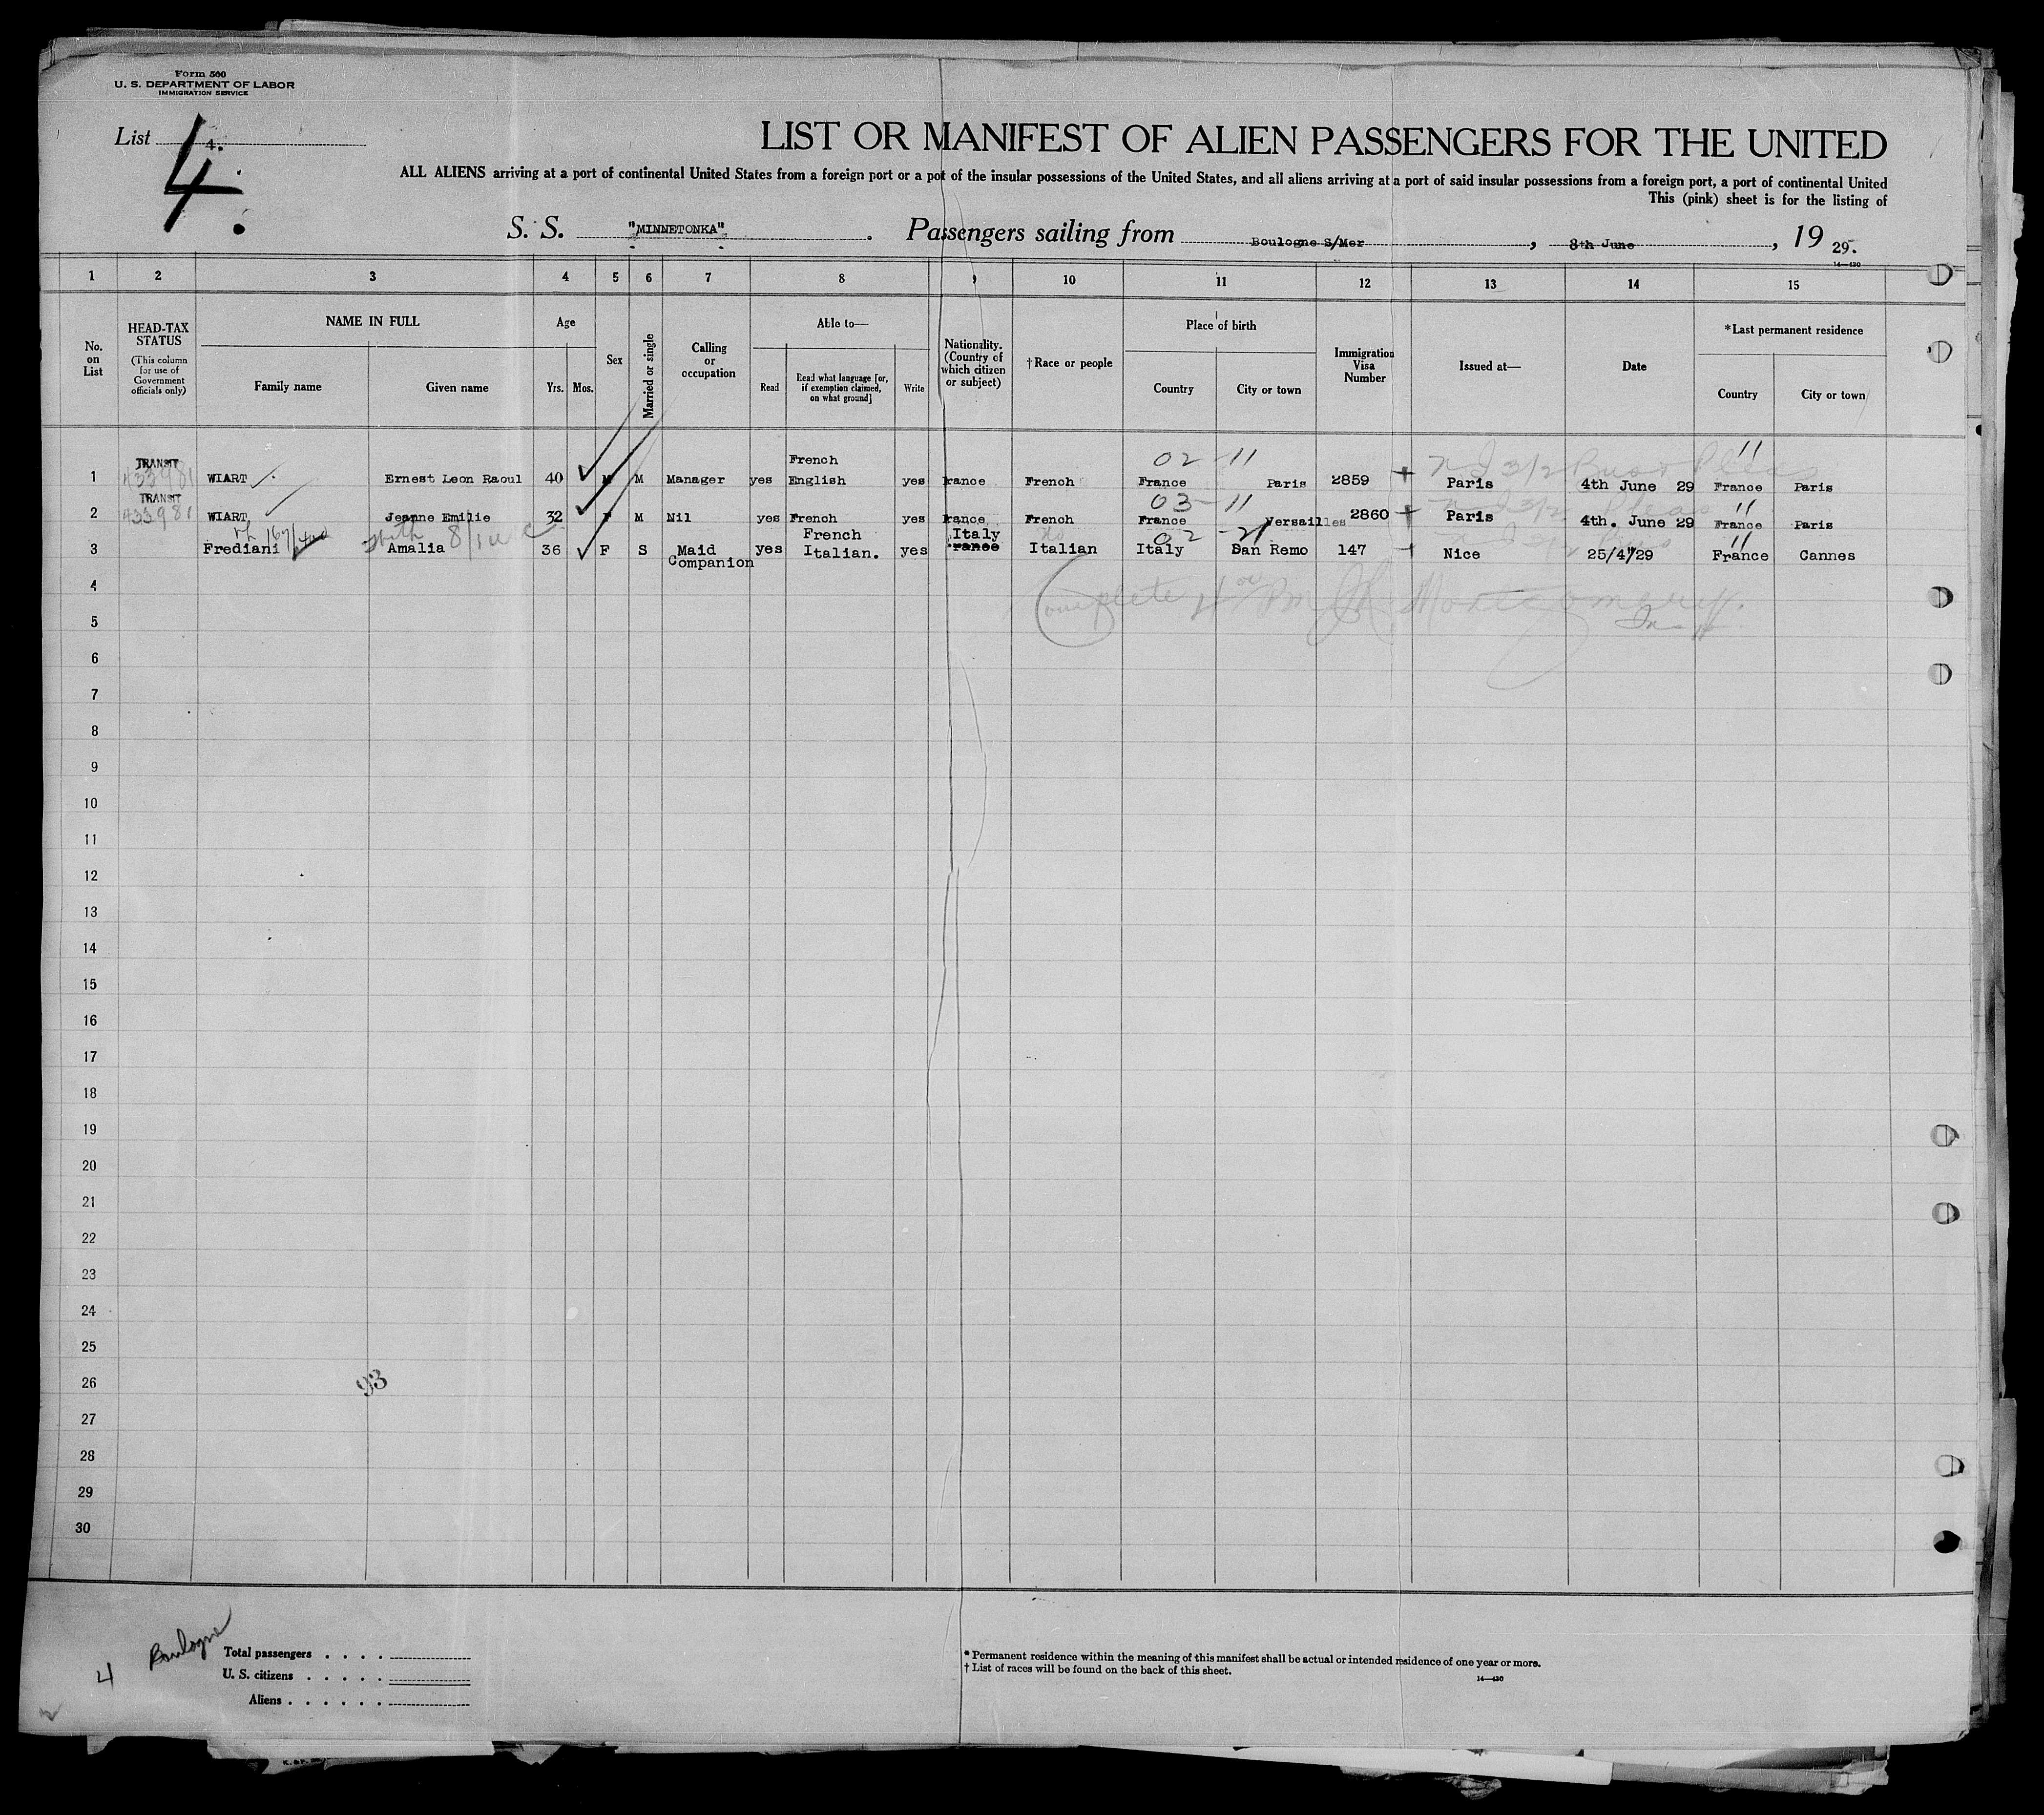 Form 500
U. S. DEPARTMENT OF LABOR
IMMIGRATION SERVICE
List 4.
4.
LIST OR MANIFEST OF ALIEN PASSENGERS FOR THE UNITED
ALL ALIENS arriving at a port of continental United States from a foreign port or a pot of the insular possessions of the United States, and all aliens arriving at a port of said insular possessions from a foreign port, a port of continental United
This (pink) sheet is for the listing of
S. S. "MINNETONKA". Passengers sailing from Boulogne S/Mer, 8th June, 19 29.
14—430
1 2 3 4 5 6 7 8 9 10 11 12 13 14 15
No. on List
HEAD-TAX STATUS
(This column for use of Government officials only)
NAME IN FULL
Family name
Given name
Age
Yrs. Mos.
Sex
Married or single
Calling or occupation
Able to—
Read
Read what language [or, if exemption claimed, on what ground]
Write
Nationality. (Country of which citizen or subject)
†Race or people
Place of birth
Country
City or town
Immigration Visa Number
Issued at—
Date
*Last permanent residence
Country
City or town
02 - 11 11
1 TRANSIT 433981 WIART Ernest Leon Raoul 40 M M Manager yes French English yes France French France Paris 2859 + Paris 4th June 29 France Paris
03 - 11 11
2 TRANSIT 433981 WIART Jeanne Emilie 32 F M Nil yes French yes France French France Versailles 2860 + Paris 4th. June 29 France Paris
02 - 21 11
3 Frediani Amalia 36 F S Maid Companion yes French Italian. yes Italy France Italian Italy San Remo 147 Nice 25/4/29 France Cannes
4
Complete Montgomery
5
6
7
8
9
10
11
12
13
14
15
16
17
18
19
20
21
22
23
24
25
26
93
27
28
29
30
4 Boulogne
Total passengers . . . .
U. S. citizens . . . . .
Aliens . . . . . .
* Permanent residence within the meaning of this manifest shall be actual or intended residence of one year or more.
† List of races will be found on the back of this sheet.
14—430